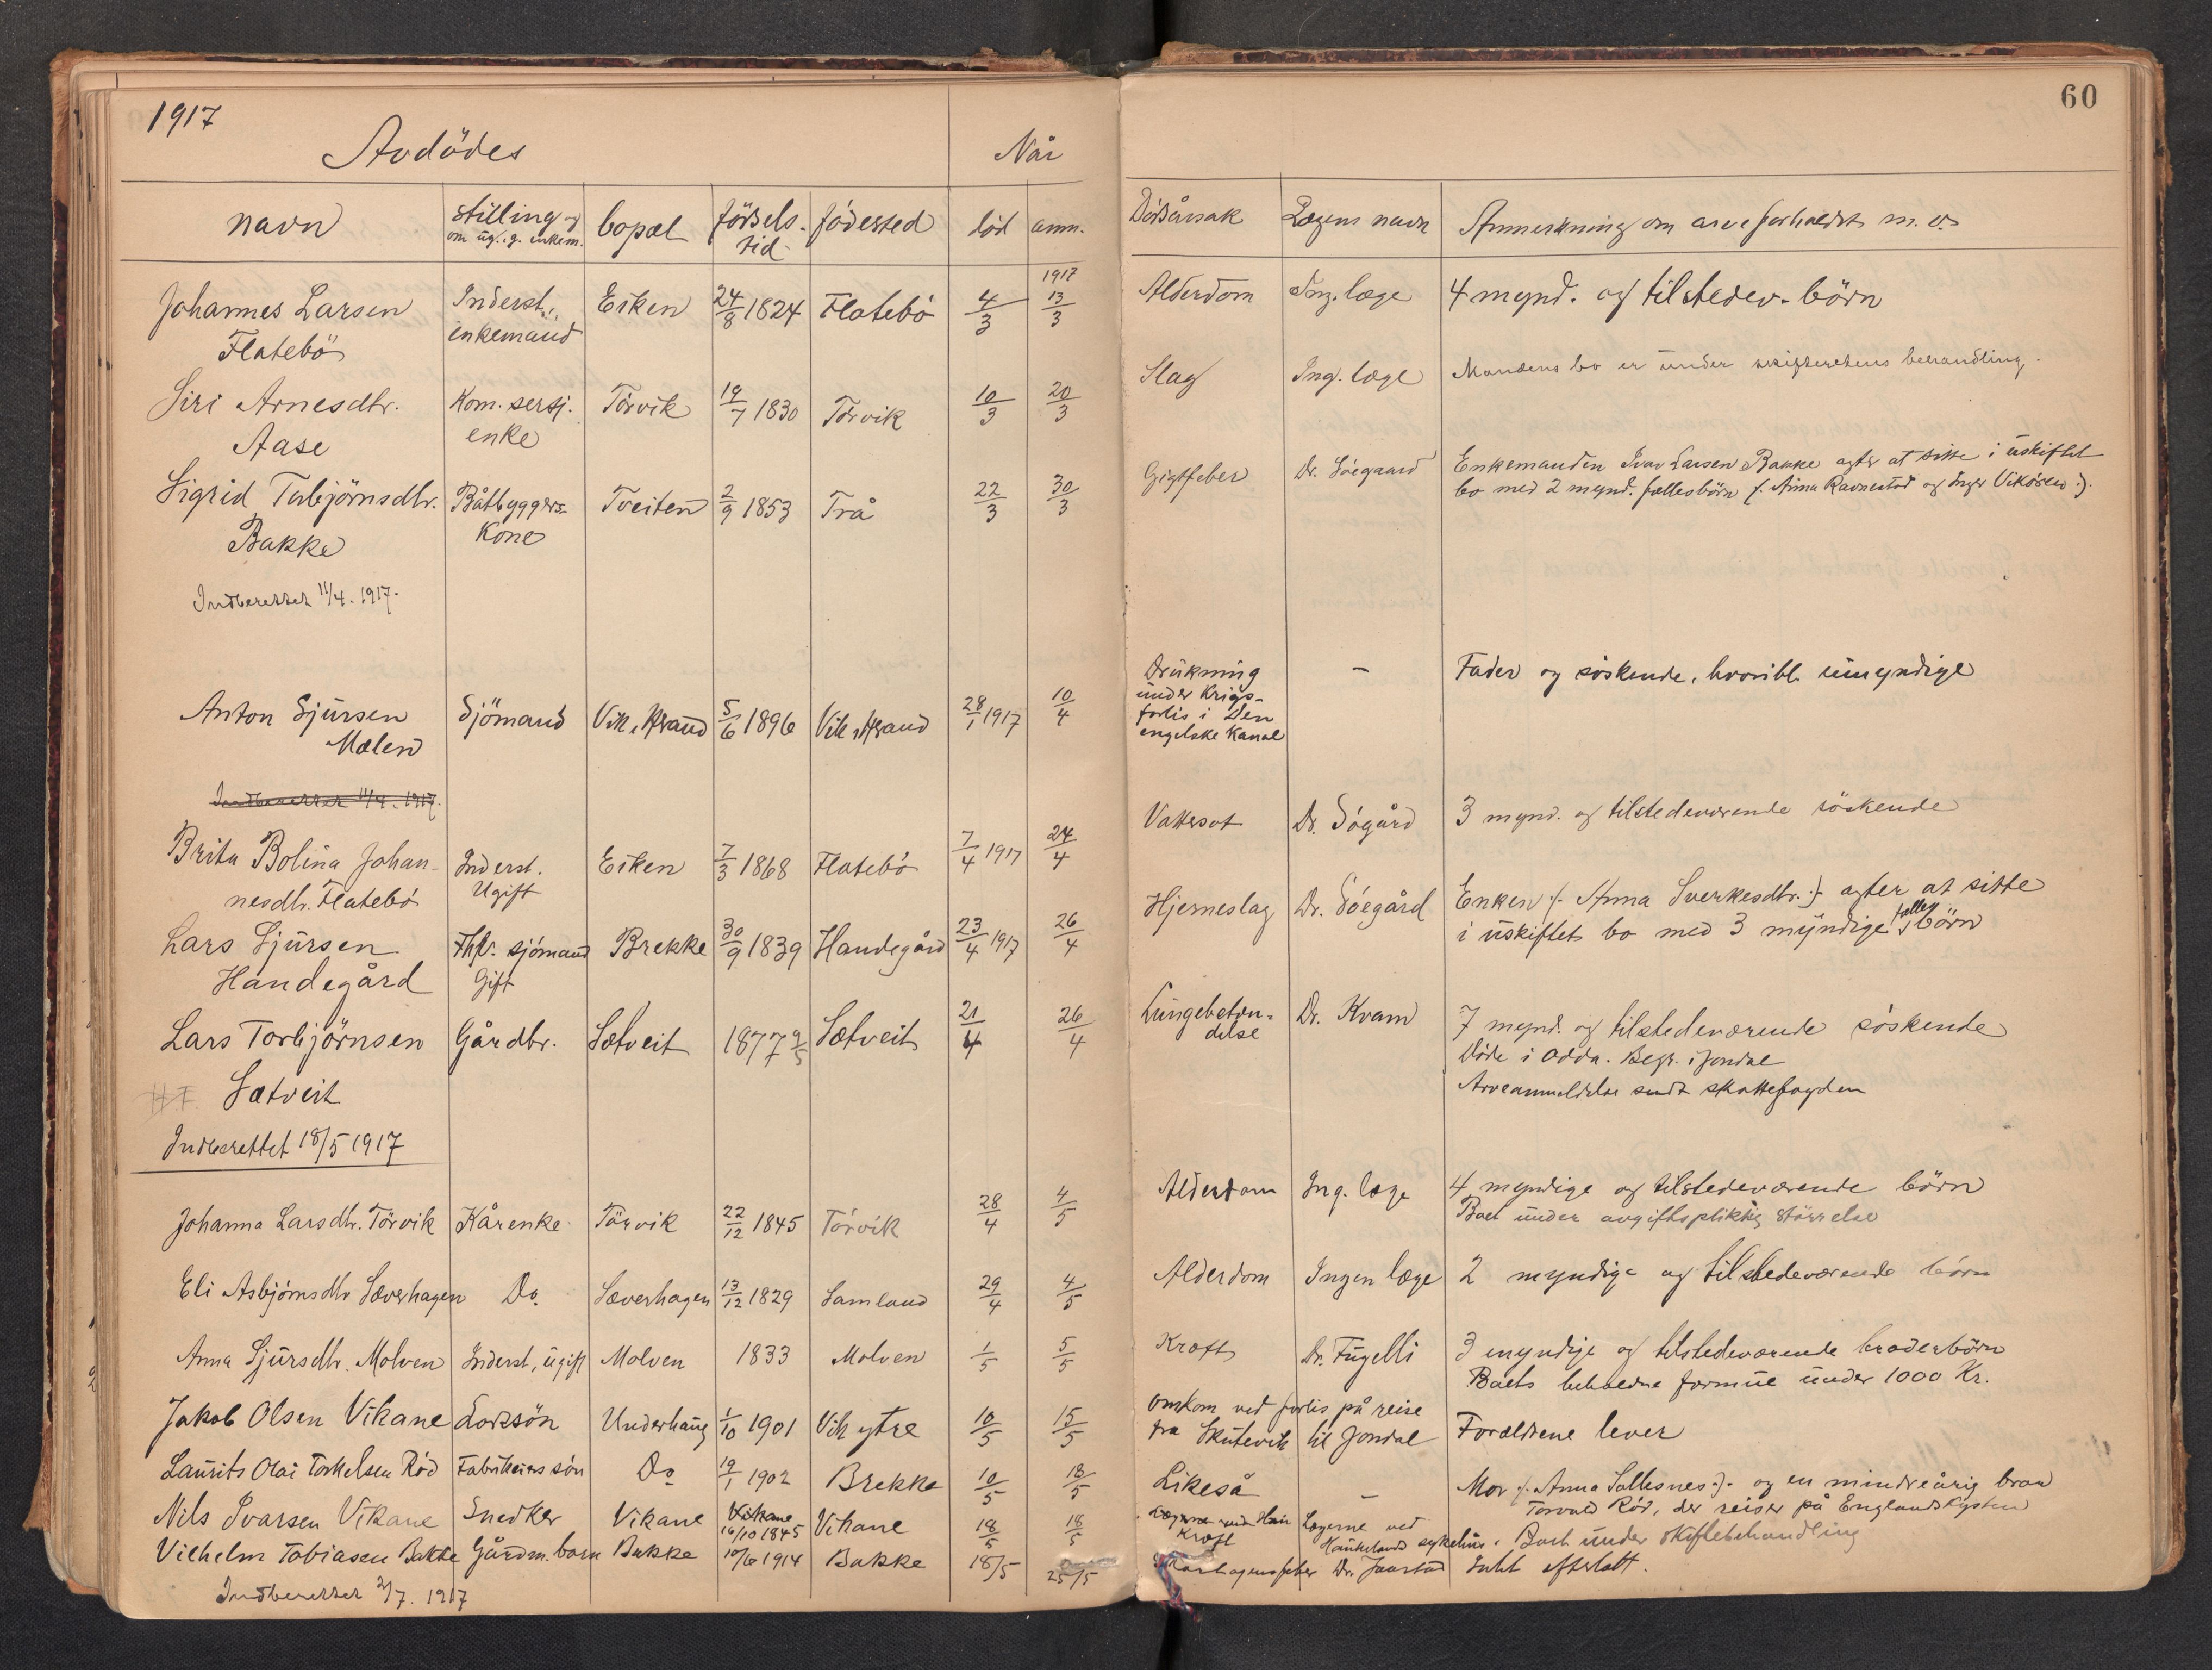 1917
60
Avdödes
Når
navn
stilling og
om ug. g. enkem.
bopæl
födsels-
tid
födested
död
anm.
Dödsårsak
Lægens navn
Anmerkning om arveforholdet m. v.
1917
Johannes Larsen
Flatebö
Inderst,
enkemand
Eiken
24/8 1824
Flatebö
4/3
13/3
Alderdom
Ing. læge
4 mynd. og tilstedev. börn
Siri Arnesdtr.
Aase
Kom. sersj.
enke
Törvik
19/7 1830
Törvik
10/3
20/3
Slag
Ing. læge
Mandens bo er under skifteretens behandling.
Sigrid Torbjörnsdtr.
Bakke
Båtbyggers
Kone
Tveiten
2/9 1853
Trå
22/3
30/3
Gigtfeber
Dr. Söegaard
Enkemanden Ivar Larsen Bakke agter at sitte i uskiftet
bo med 2 mynd. fællesbörn (: Anna Ravnestad og Inger Vikören :).
Indberettet 11/4. 1917.
Anton Sjursen
Mælen
Sjömand
Vik, Strand
5/6 1896
Vik, Strand
28/1 1917
10/4
Drukning
under Krigs-
forlis i Den
engelske Kanal
–
Fader og söskende, hvoribl. umyndige
Indberettet 11/4. 1917.
Brita Bolina Johan-
nesdtr. Flatebö
Inderst.
Ugift
Eiken
7/3 1868
Flatebö
7/4 1917
24/4
Vattersot
Dr. Sögård
3 mynd. og tilstedeværende söskende
Lars Sjursen
Handegård
Fhv. sjömand
Gift
Brekke
30/9 1839
Handegård
23/4 1917
26/4
Hjerneslag
Dr. Söegård
Enken (: Anna Sverkesdtr. :) agter at sitte
i uskiftet bo med 3 myndige fælles börn
Lars Torbjörnsen
Sætveit
Gårdbr.
Sætveit
1877 9/5
Sætveit
21/4
26/4
Lungebeten-
delse
Dr. Kvam
7 mynd. og tilstedeværende söskende
Döde i Odda. Begr. i Jondal
Arveanmeldelse sendt skattefogden
Indberettet 18/5 1917
Johanna Larsdtr. Törvik
Kårenke
Törvik
22/12 1845
Törvik
28/4
4/5
Alderdom
Ing. læge
4 myndige og tilstedeværende börn
Boet under avgiftspliktig störrelse
Eli Asbjörnsdtr Sæverhagen
Do.
Sæverhagen
13/12 1829
Samland
29/4
4/5
Alderdom
Ingen læge
2 myndige og tilstedeværende börn
Anna Sjursdtr. Molven
Inderst, ugift
Molven
1833
Molven
1/5
5/5
Kræft
Dr. Fugelli
3 myndige og tilstedeværende broderbörn
Boets beholdne formue under 1000 Kr.
Jakob Olsen Vikane
Lodssön
Underhaug
1/10 1901
Vik ytre
10/5
15/5
Omkom ved forlis på reise
fra Skutevik til Jondal
Forældrene lever
Laurits Olai Torkelsen Röd
Fabrikeiers sön
Do
19/1 1902
Brekke
10/5
18/5
Likeså
–
Mor (: Anna Sallesnes :) og en mindreårig bror
Torvald Röd, der reiser på Englandskysten
Nils Ivarsen Vikane
Snedker
Vikane
Vikane
16/10 1845
Vikane
18/5
18/5
Lægerne ved Hau
Kræft
Lægerne ved
Haukelands sykehus.
Boet under skiftebehandling
Vilhelm Tobiasen Bakke
Gårdm. barn
Bakke
10/6 1914
Bakke
18/5
25/5
Skarlagensfeber
Dr. Jaastad
Intet efterlatt.
Indberettet 2/7. 1917